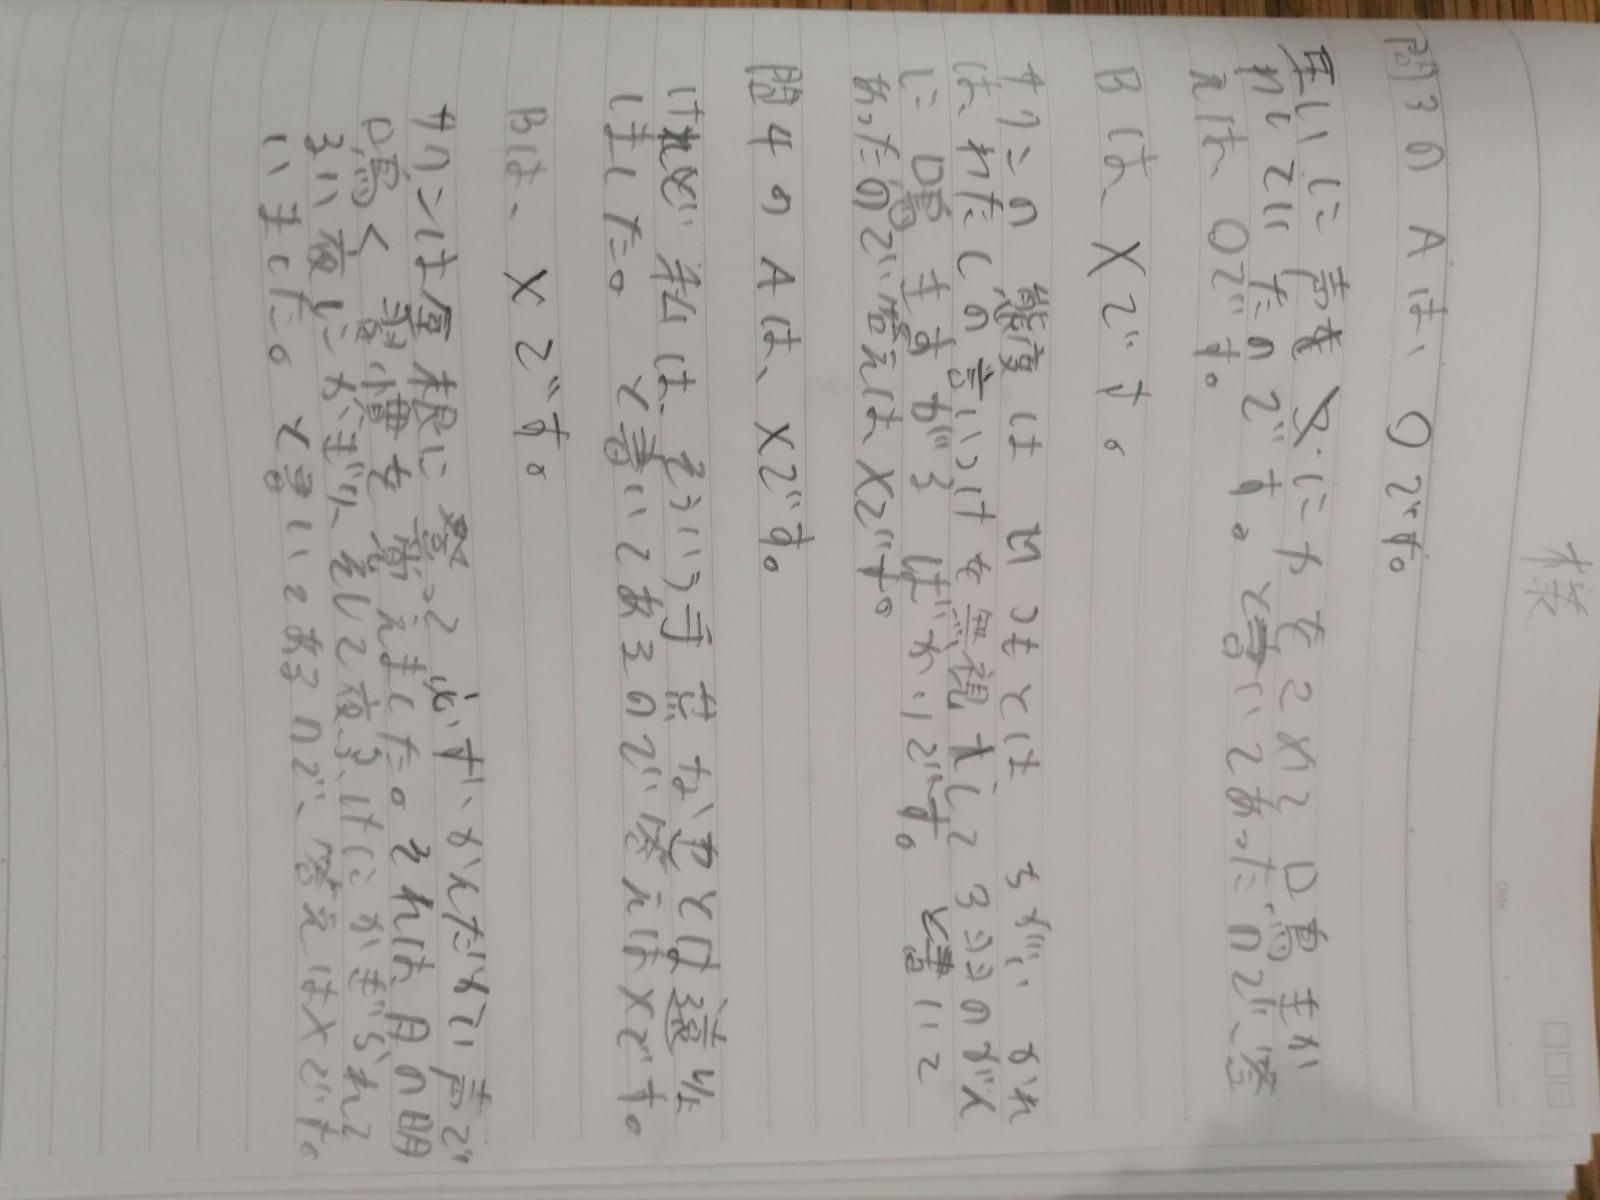 様
Date
問3のAは、〇です。
互いに声を交にカをこめて鳴きか
わしていたのです。と書いてあったので、答
えは、〇です。
Bは、Xです。
カワンの態度はいつもとは ちがいかれ
は、わたしの言いつけを無視をして3つのがん
に鳴きながら ばかりです。と書いて
あったので、答えはXです。
問4のAは、Xです。
けれど 私は、そういう寸志なやとは違な
しました。と書いてあるので答えはXです。
Bは、Xです。
カワンは屋根に登って必ず、かんだかい声で
鳴く習慣を覚えました。それは、月の明
るい夜にかぎり、そして夜ふけにかぎられて
いました。と書いてあるので、答えはXです。